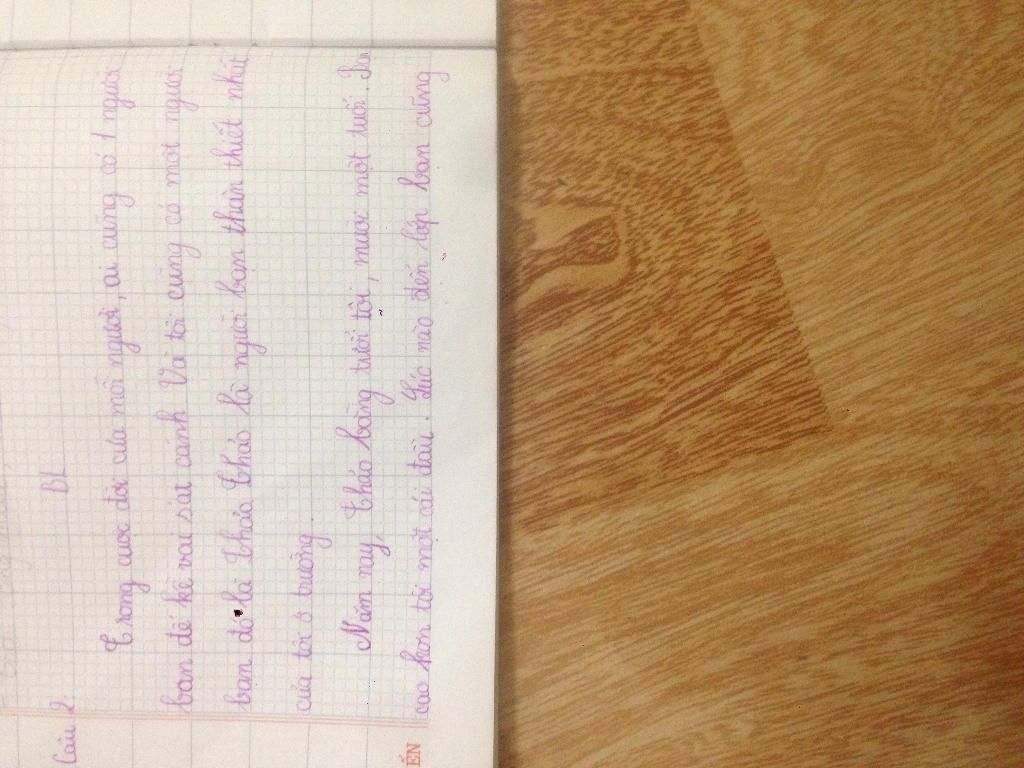 Câu 2.
BL
Trong cuộc đời của mỗi người, ai cũng có 1 người
bạn để kề vai sát cánh Và tôi cũng có một người
bạn đó là Thảo Thảo là người bạn thân thiết nhất
của tôi ở trường.
Năm nay, Thảo bằng tuổi tôi, mười một tuổi. Bạn
cao hơn tôi một cái đầu. Lúc nào đến lớp bạn cũng
ẾN